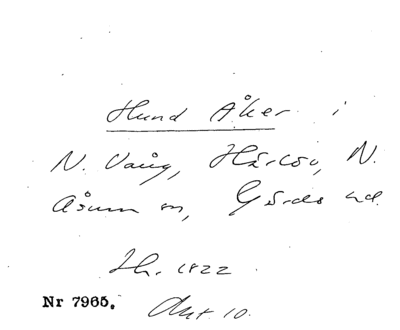 Hund Åker i
N. Vång, Härlöv, N.
Åsum sn, Gärds hd.
Th. 1822
Nr 7965. Akt 10.